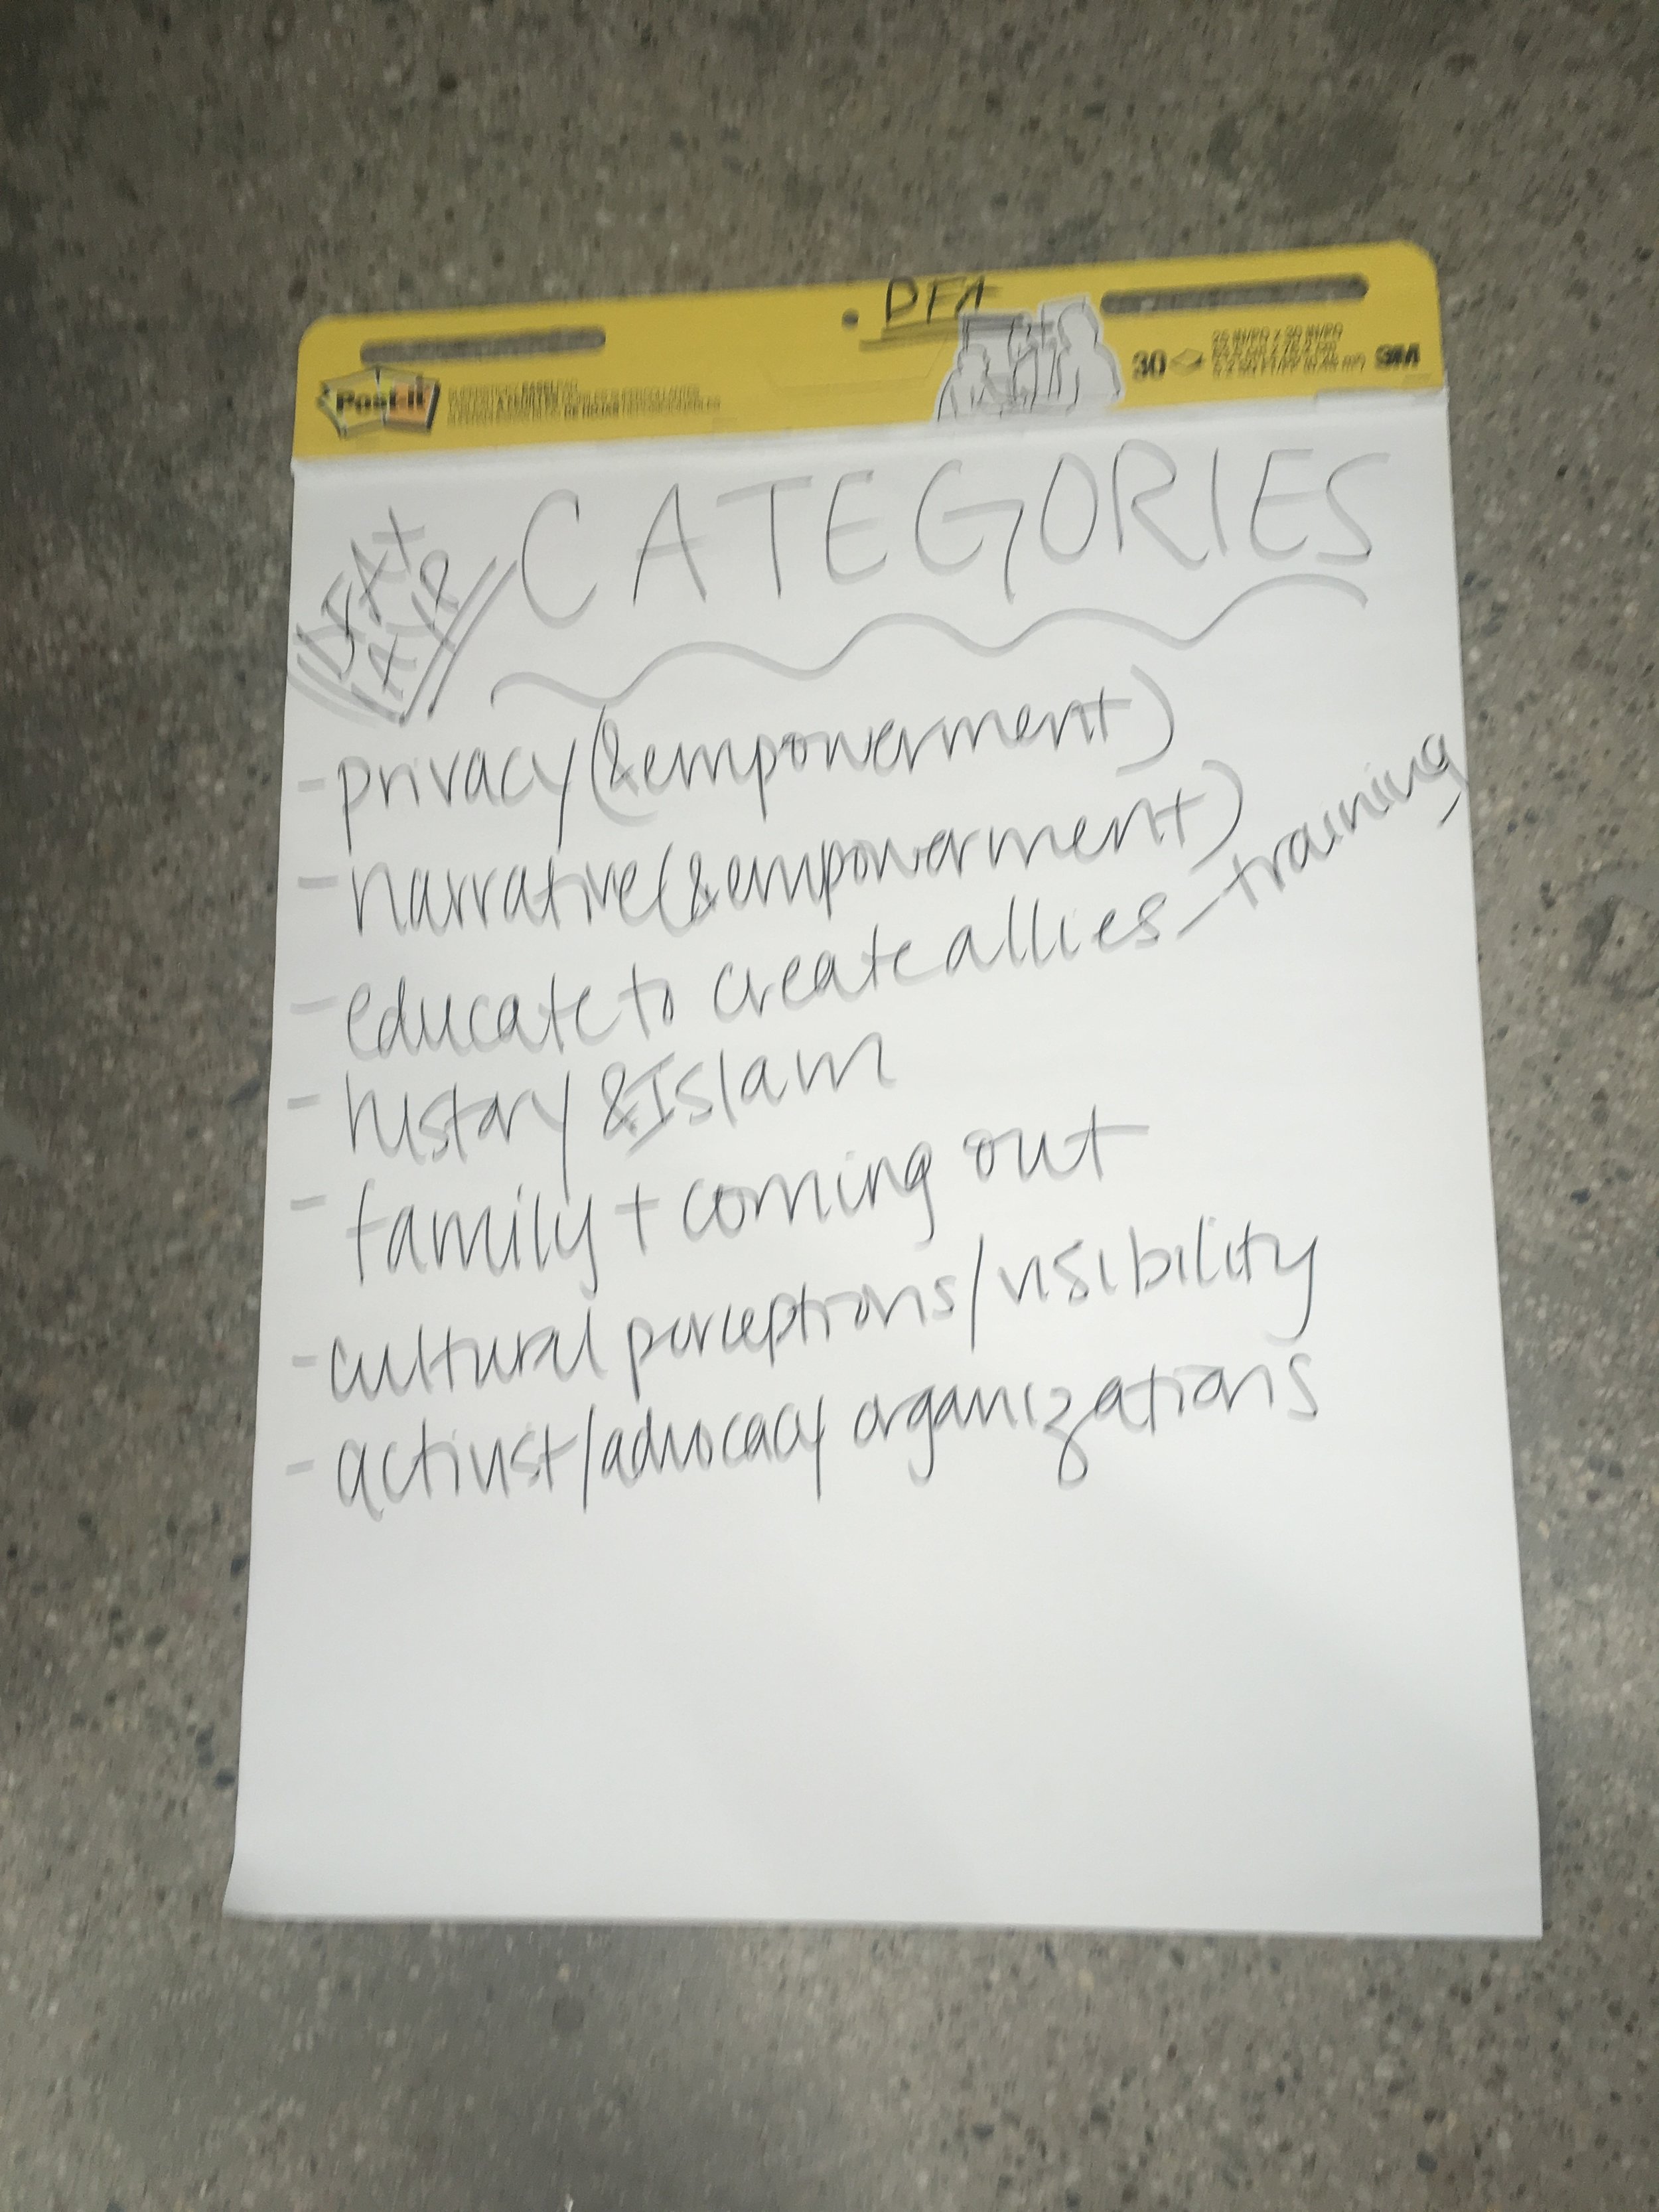 DFA
Post-it
30
3M
CATEGORIES
DFA x
- privacy (& empowerment)
- narrative (& empowerment)
- educate to create allies - training
- history & Islam
- family + coming out
- cultural perceptions/visibility
- activist/advocacy organizations